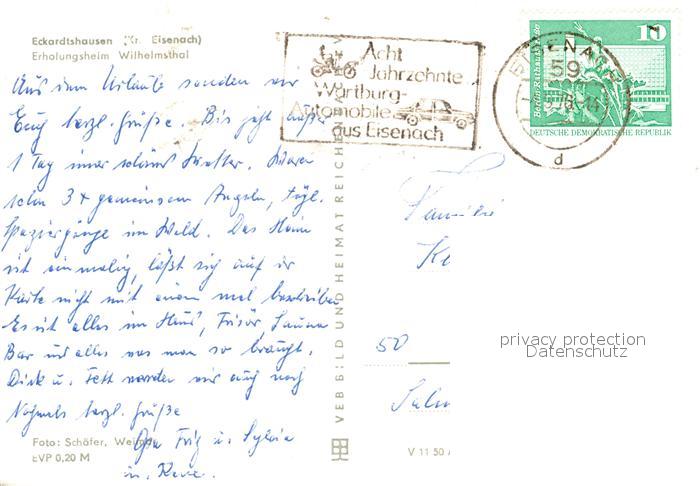 Eckardtshausen (Kr. Eisenach)
Erholungsheim Wilhelmsthal
Aus dem Urlaub senden wir
Euch herzl. Grüße. Bis jetzt außer
1 Tag immer schönes Wetter. Waren
schon 3 x gemeinsam Angeln, tägl.
Spaziergänge im Wald. Das Heim
ist einmalig, läßt sich auf der
Karte nicht mit einem mal beschreiben
Es ist alles im Haus, Frisör, Sauna
Bar und alles was man so braucht.
Dick u. Fett werden wir auch noch
Nochmals herzl. Grüße
Opa Fritz u. Sylvia
u.
Foto: Schäfer, Weimar
EVP 0,20 M
VEB BILD UND HEIMAT REICHENBACH
Acht
Jahrzehnte
Wartburg-
Automobile
aus Eisenach
EISENACH
59
d
10
Berlin, Rathausstraße
DEUTSCHE DEMOKRATISCHE REPUBLIK
Familie
50
V 11 50
privacy protection
Datenschutz